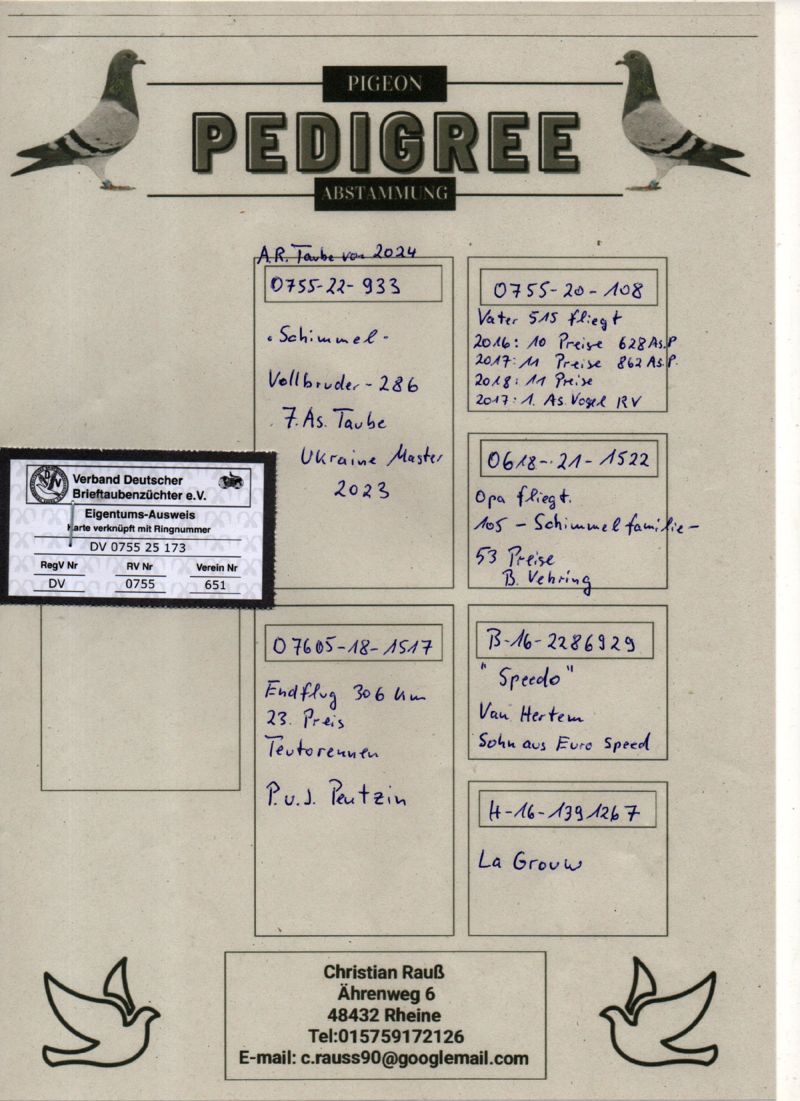 PIGEON
PEDIGREE
ABSTAMMUNG
A.R. Taube von 2024
0755-22-933
"Schimmel"
Vollbruder - 286
7. As. Taube
Ukraine Master
2023
0755-20-108
Vater 515 fliegt
2016: 10 Preise 628 As.P
2017: 11 Preise 862 As.P.
2018: 11 Preise
2017: 1. As. Vogel RV
0618-21-1522
Opa fliegt.
105 - Schimmelfamilie -
53 Preise
B. Vehring
Verband Deutscher
Brieftaubenzüchter e.V.
Eigentums-Ausweis
Karte verknüpft mit Ringnummer
DV 0755 25 173
RegV Nr RV Nr Verein Nr
DV 0755 651
07605-18-1517
Endflug 306 km
23. Preis
Teutorennen
P.u.J. Peutzin
B-16-2286929
"Speedo"
Van Hertem
Sohn aus Euro Speed
H-16-1391267
La Grouw
Christian Rauß
Ährenweg 6
48432 Rheine
Tel:015759172126
E-mail: c.rauss90@googlemail.com